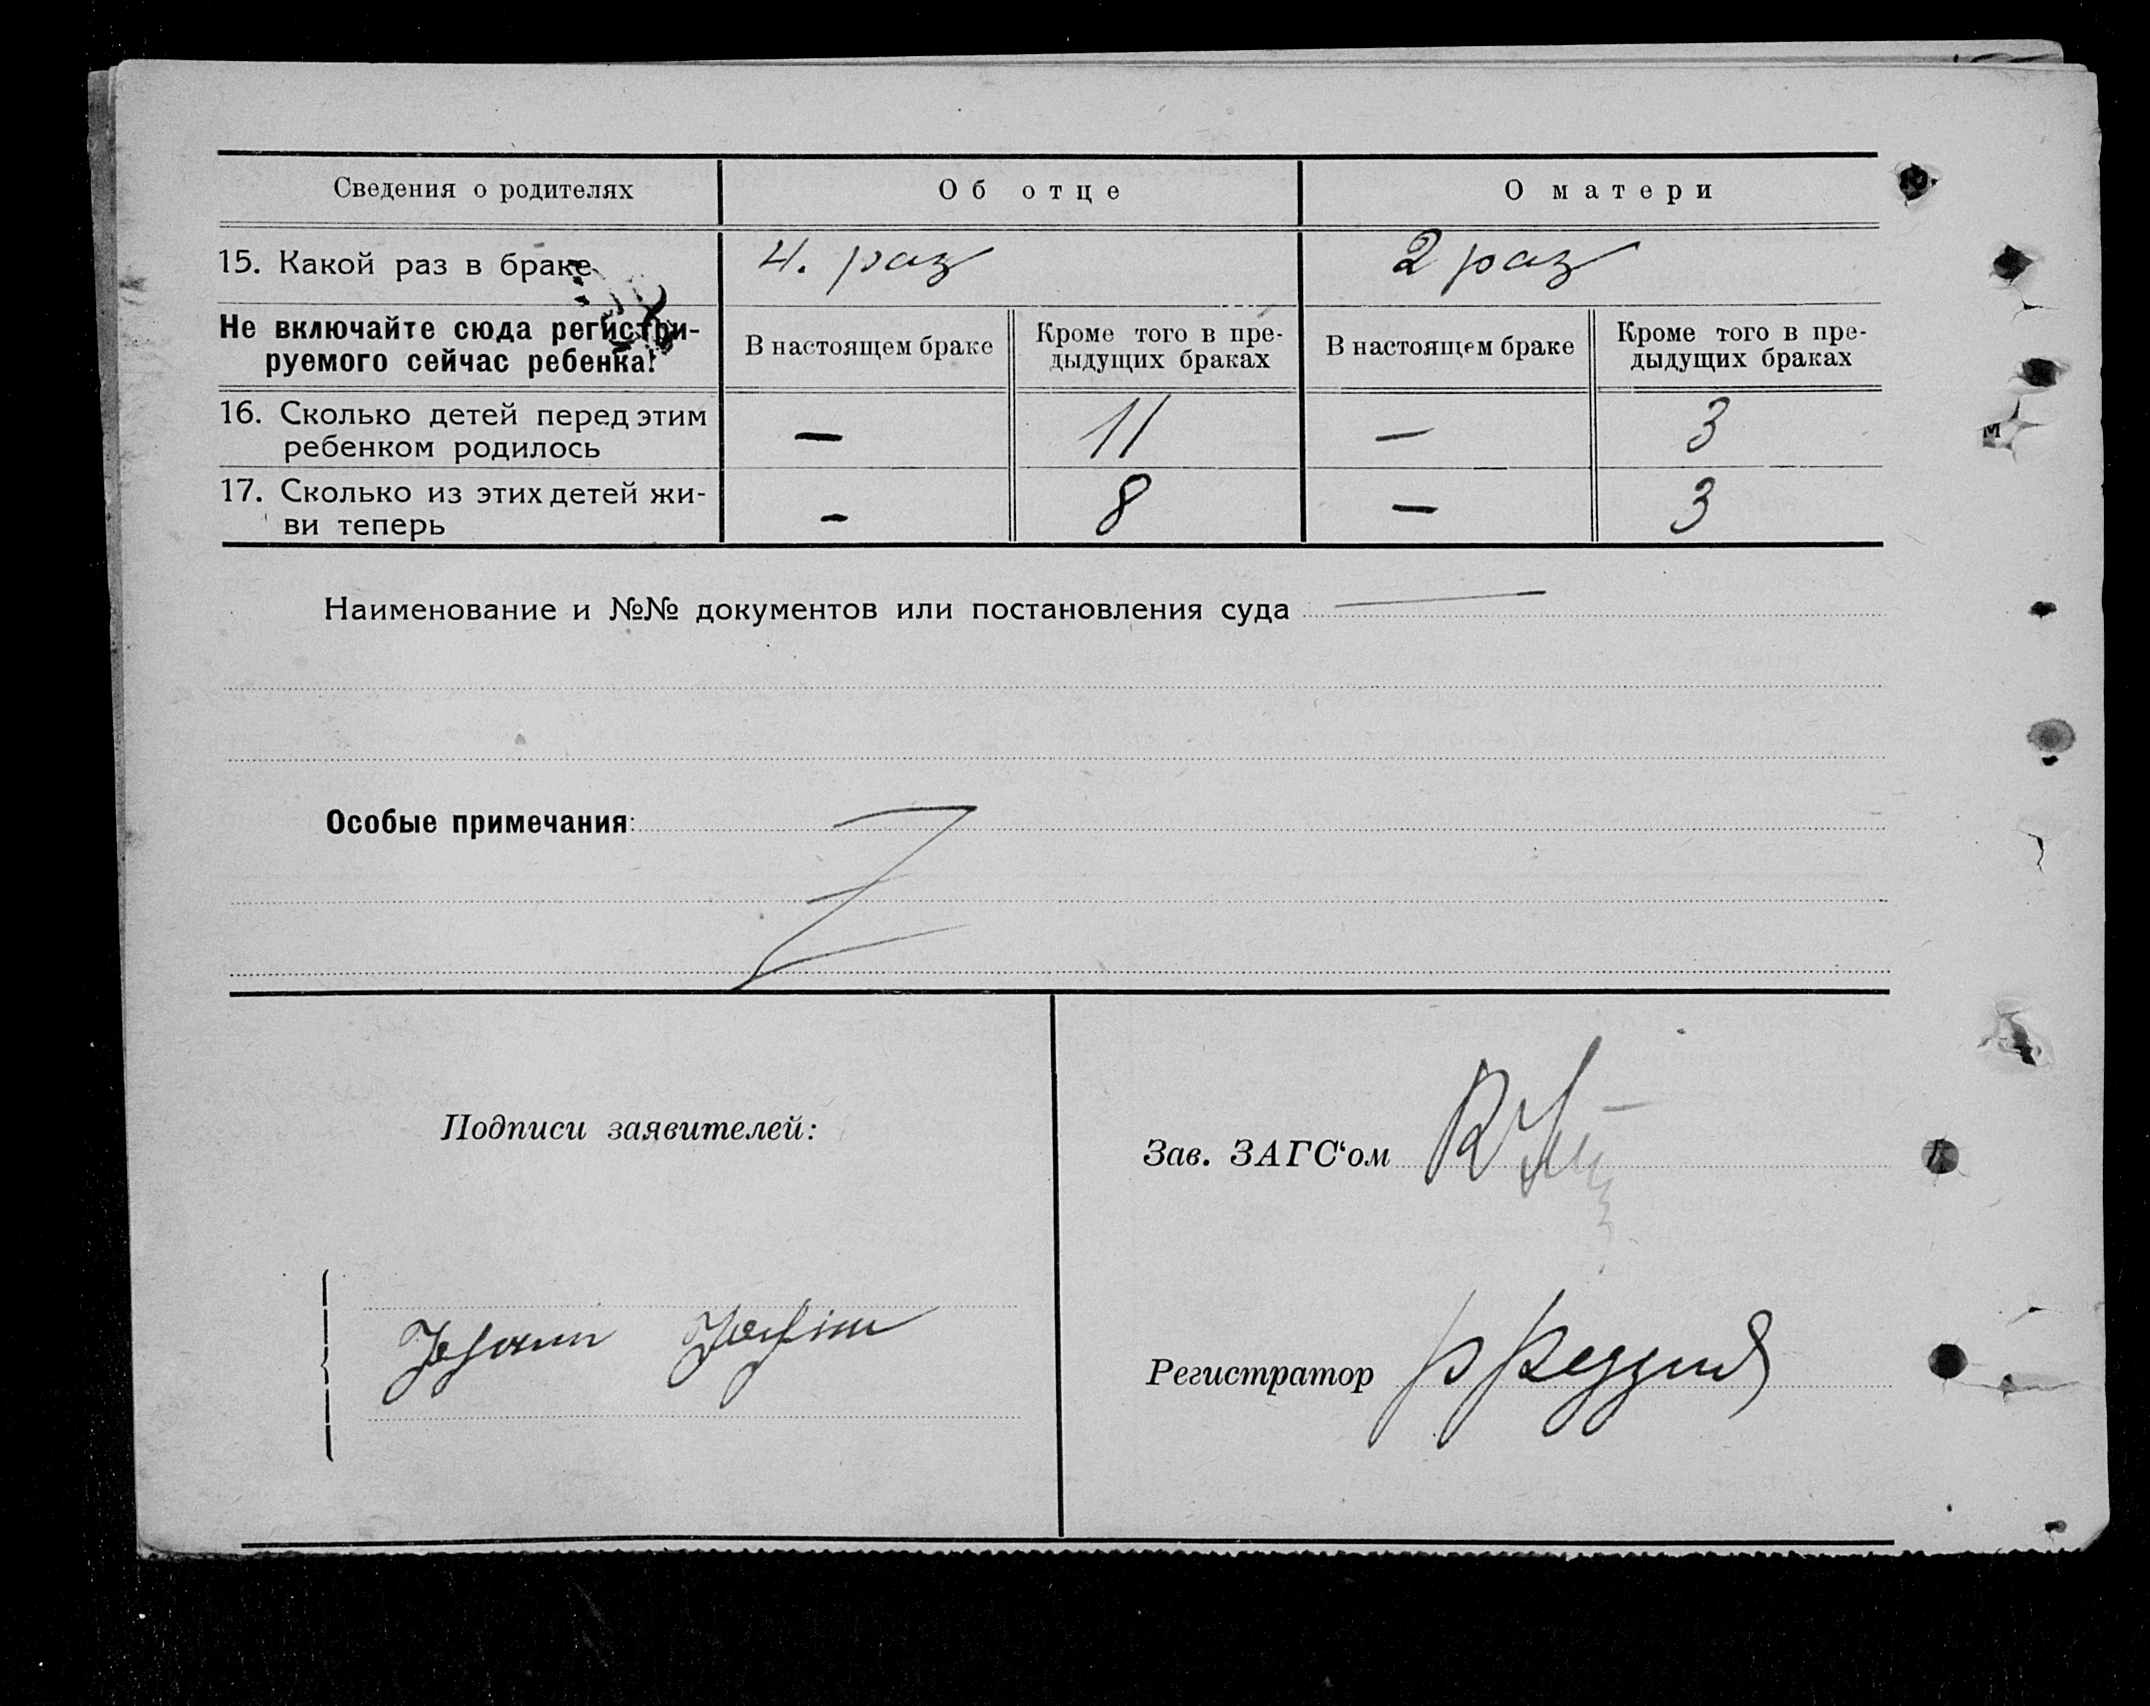 Сведения о родителях Об отце О матери
15. Какой раз в браке 4. раз 2 раз
Не включайте сюда регистри-
руемого сейчас ребенка!
В настоящем браке
Кроме того в пре-
дыдущих браках
В настоящем браке
Кроме того в пре-
дыдущих браках
16. Сколько детей перед этим
ребенком родилось
— 11 — 3
17. Сколько из этих детей жи-
ви теперь
- 8 — 3
Наименование и №№ документов или постановления суда —
Особые примечания: Z
Подписи заявителей:
Зав. ЗАГС‘ом
Регистратор